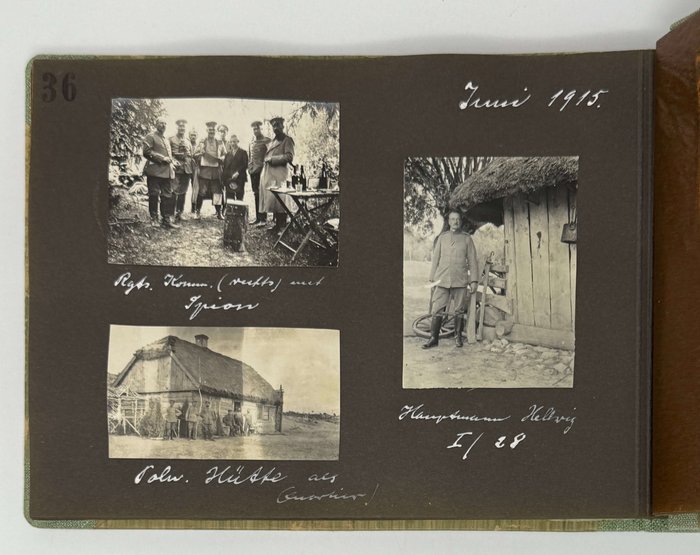 36
Juni 1915.
Rgts. Komm. (rechts) mit
Spion
Hauptmann Hellwig
I/28
Poln. Hütte als
(Quartier)